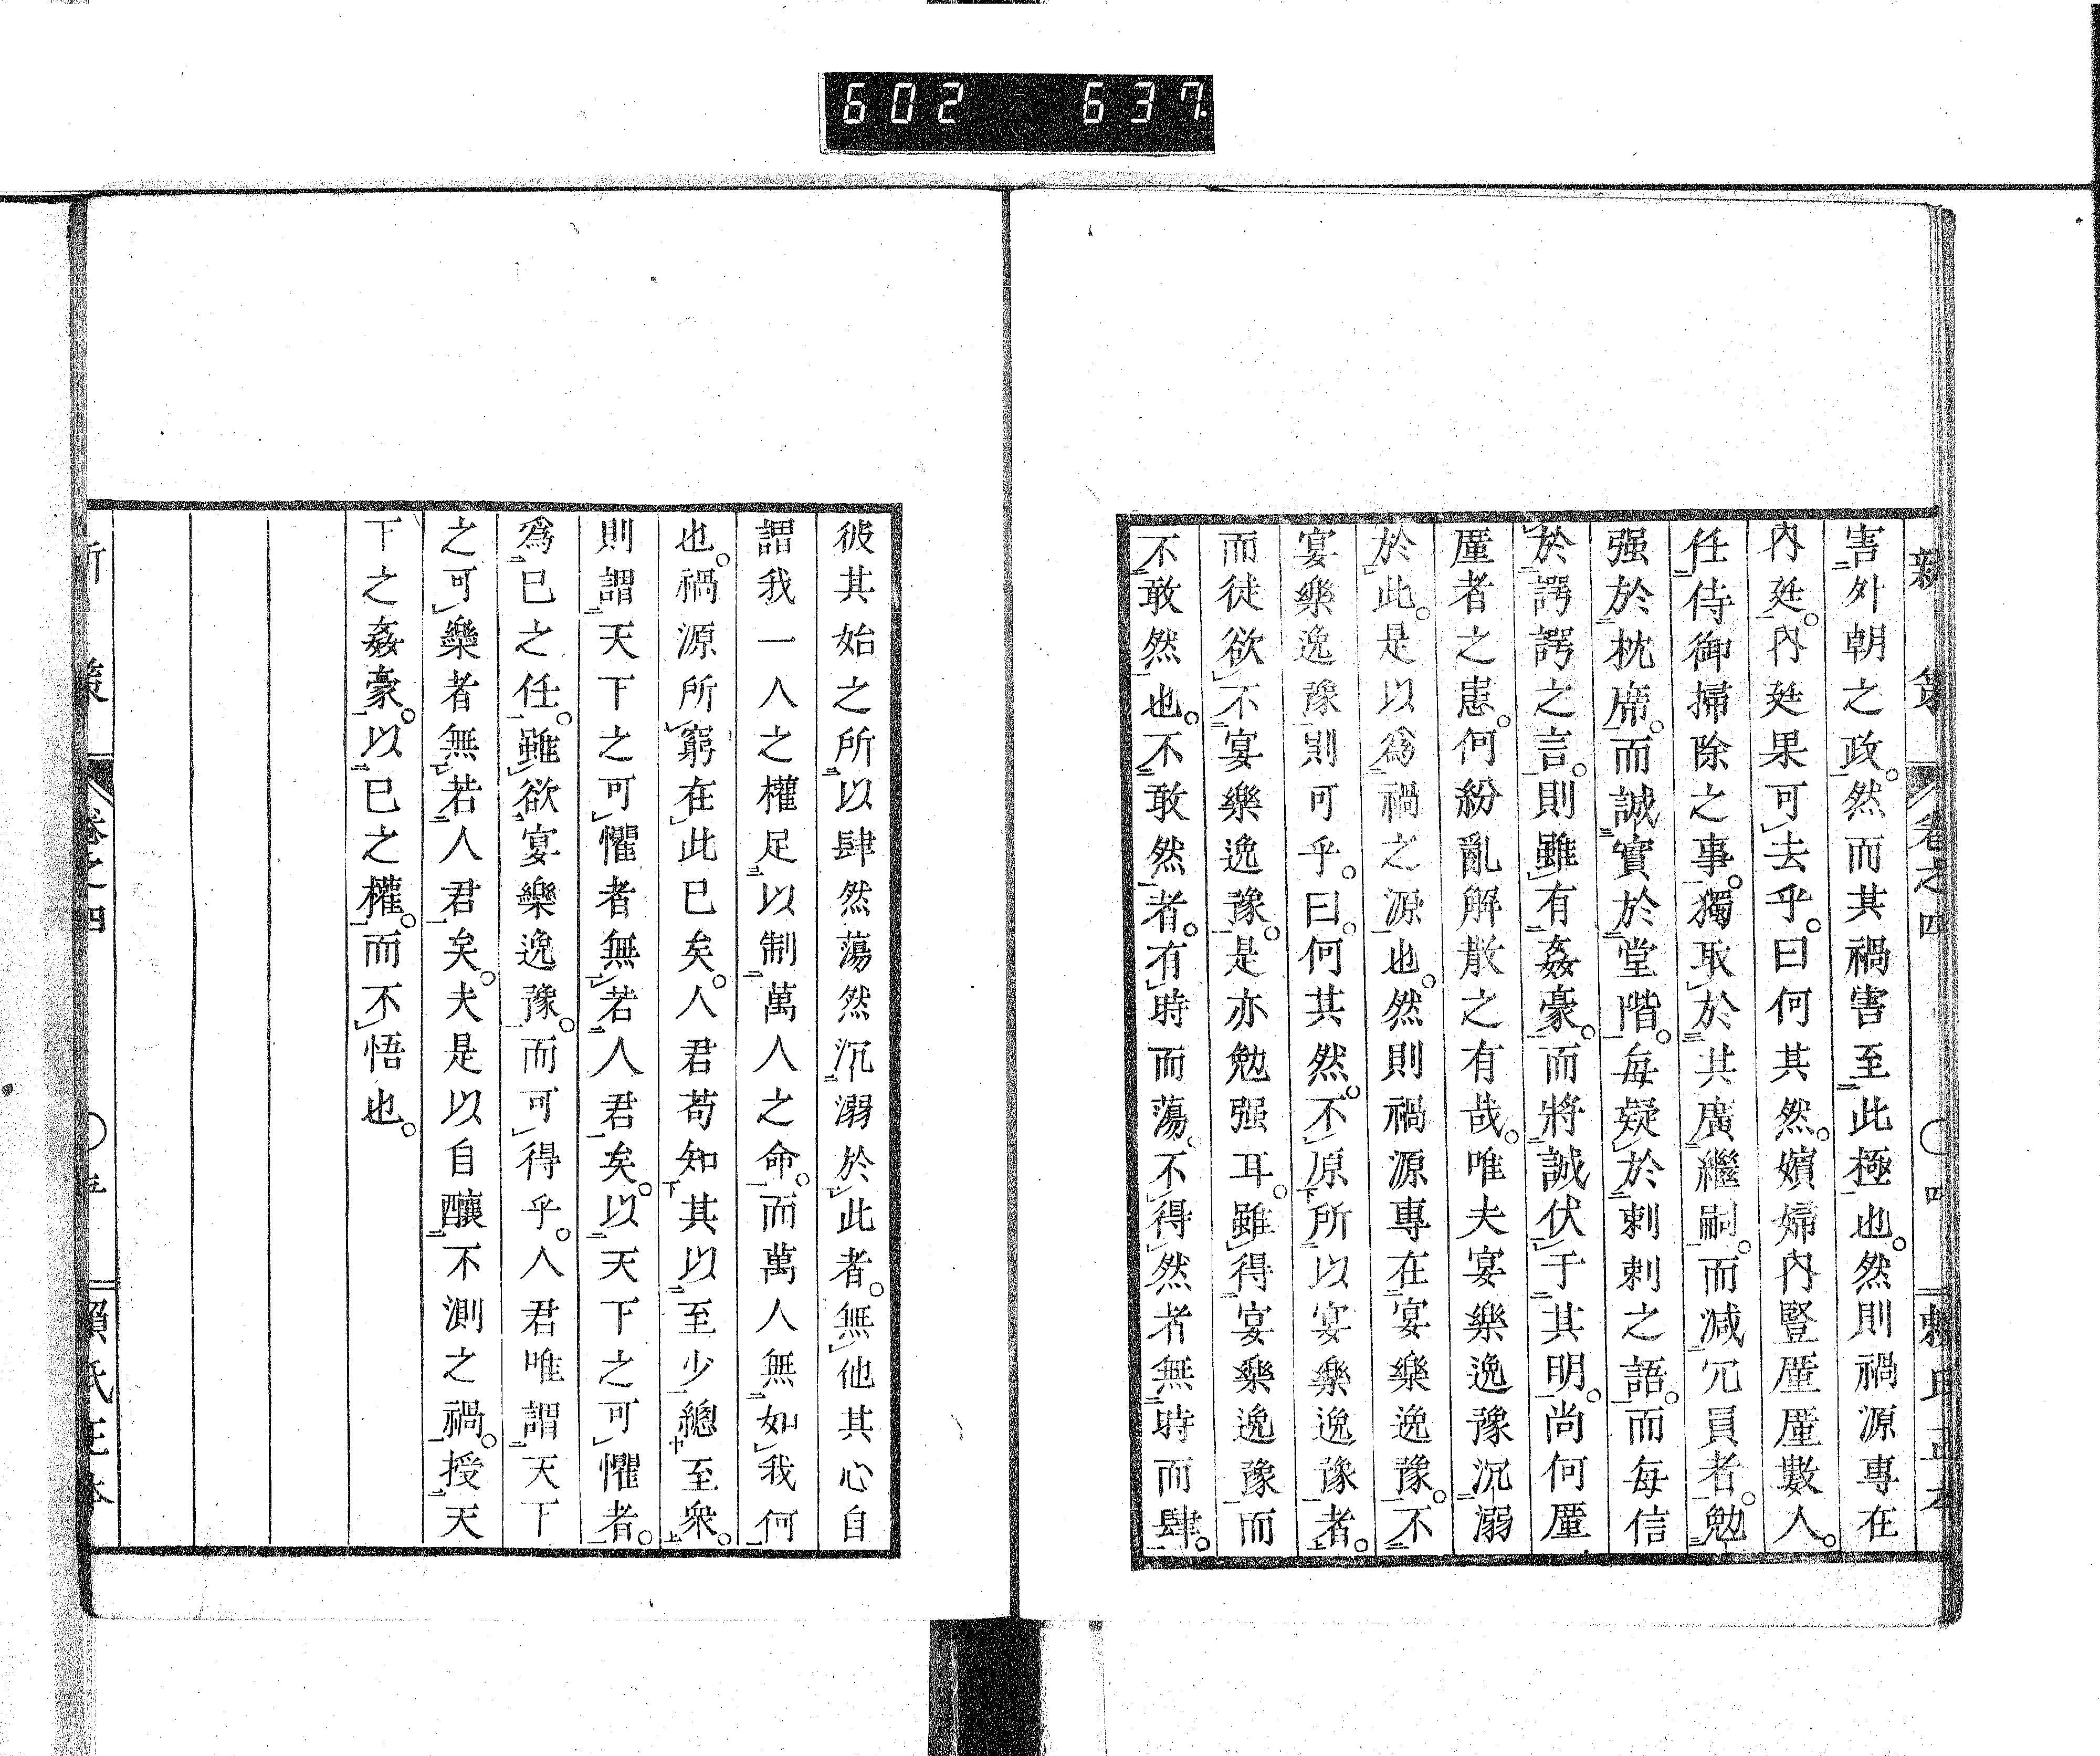 602 637
新策 卷之四 〇四 賴氏正本
害外朝之政。然而其禍害至此極也。然則禍源專在
內廷。內廷果可去乎。曰何其然。嬪婦內豎厪厪數人。
任侍御掃除之事。獨取於其廣繼嗣。而減冗員者。勉
强於枕席。而誠實於堂階。每疑於刺刺之語。而每信
於諤諤之言。則雖有姦豪。而將誠伏于其明。尚何厪
厪者之患。何紛亂解散之有哉。唯夫宴樂逸豫沉溺
於此。是以爲禍之源也。然則禍源專在宴樂逸豫。不
宴樂逸豫則可乎。曰。何其然。不原所以宴樂逸豫者。
而徒欲不宴樂逸豫。是亦勉强耳。雖得宴樂逸豫而
不敢然也。不敢然者。有時而蕩。不得然者無時而肆。
彼其始之所以肆然蕩然沉溺於此者。無他其心自
謂我一人之權足以制萬人之命。而萬人無如我何
也。禍源所窮在此已矣。人君苟知其以至少總至衆。
則謂天下之可懼者無若人君矣。以天下之可懼者。
爲已之任。雖欲宴樂逸豫。而可得乎。人君唯謂天下
之可樂者無若人君矣。夫是以自釀不測之禍。授天
下之姦豪。以已之權。而不悟也。
新策 卷之四 〇五 賴氏正本